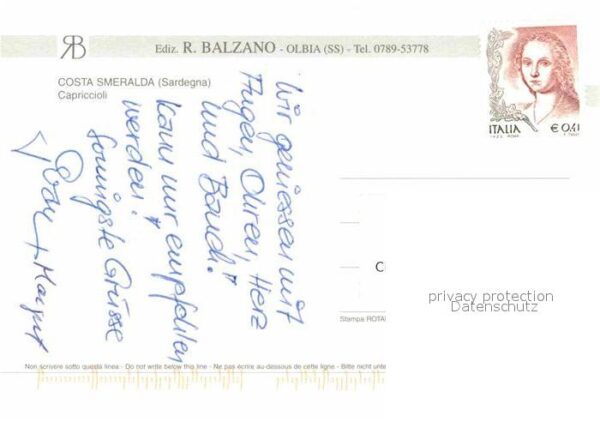 RB
Ediz. R. BALZANO - OLBIA (SS) - Tel. 0789-53778
COSTA SMERALDA (Sardegna)
Capriccioli
Wir geniessen mit
Augen, Ohren, Herz
und Bauch!
Kann nur empfohlen
werden!
Sonnigste Grüsse
+ Margrit
ITALIA
€ 0,41
privacy protection
Datenschutz
Stampa ROTA
Non scrivere sotto questa linea - Do not write below this line - Ne pas écrire au-dessous de cette ligne - Bitte nicht unt